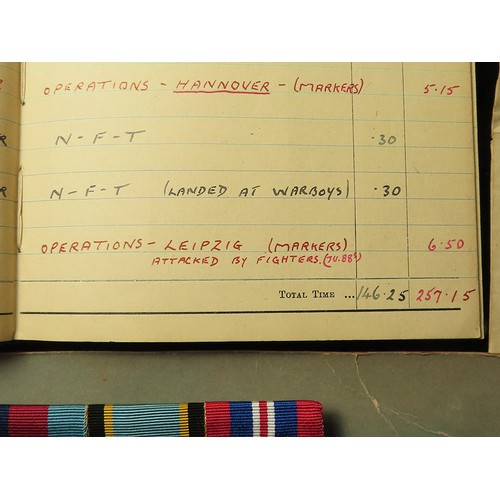 OPERATIONS - HANNOVER - (MARKERS) 5.15
N-F-T .30
N-F-T (LANDED AT WARBOYS) .30
OPERATIONS - LEIPZIG (MARKERS) 6.50
ATTACKED BY FIGHTERS. (JU.88s)
TOTAL TIME ... 146.25 257.15